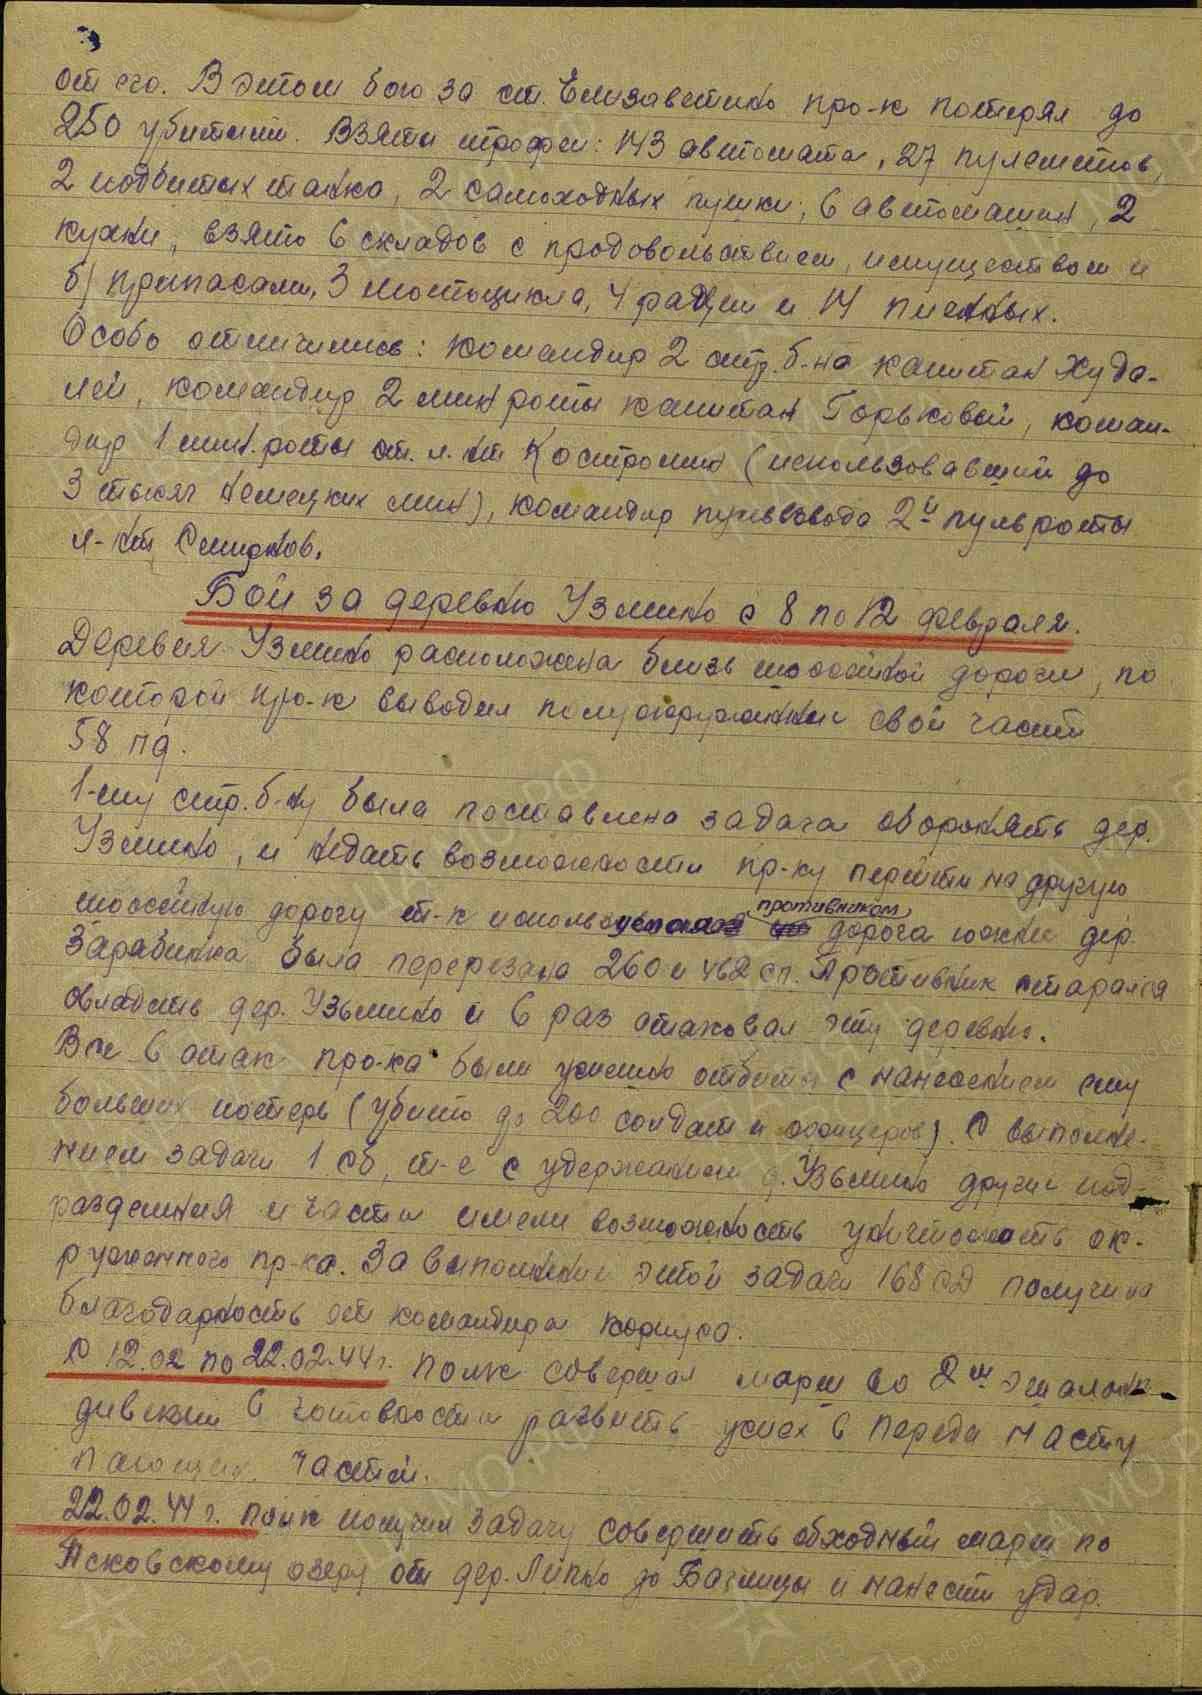 от его. В этом бою за ст. Елизаветино про-к потерял до
250 убитыми. Взяты трофеи: 143 автомата, 27 пулеметов,
2 подбитых танка, 2 самоходных пушки, 6 автомашин, 2
кухни, взято 6 складов с продовольствием, имуществом и
б/припасами, 3 мотоцикла, 4 рации и 14 пленных.
Особо отличились: командир 2 стр. б-на капитан Худо-
лей, командир 2 мин роты капитан Горьковый, коман-
дир 1 мин. роты ст. л-нт Костромин (использовавший до
3 тысяч немецких мин), командир пульвзвода 2й пульроты
л-нт Смирнов.
Бой за деревню Узмино с 8 по 12 февраля.
Деревня Узмино расположена близь шоссейной дороги, по
которой про-к выводил полуокруженные свои части
58 пд.
1-му стр. б-ну была поставлена задача оборонять дер.
Узмино, и недать возможности пр-ку перейти на другую
шоссейную дорогу т-к используемая противником дорога южнее дер.
Зарабинка была перерезана 260 и 462 сп. Противник старался
овладеть дер. Узьмино и 6 раз атаковал эту деревню.
Все 6 атак про-ка были успешно отбиты с нанесением ему
больших потерь (убито до 200 солдат и офицеров). С выполне-
нием задачи 1 сб, т-е с удержанием д. Узьмино другие под-
разделения и части имели возможность уничтожать ок-
руженного пр-ка. За выполнение этой задачи 168 СД получила
благодарность от командира корпуса.
С 12.02 по 22.02.44 г. полк совершал марш во 2м эшелоне
дивизии в готовности развить успех впереди насту
пающих частей.
22.02.44 г. полк получил задачу совершить обходный марш по
Псковскому озеру от дер. Липно до Баглицы и нанести удар.